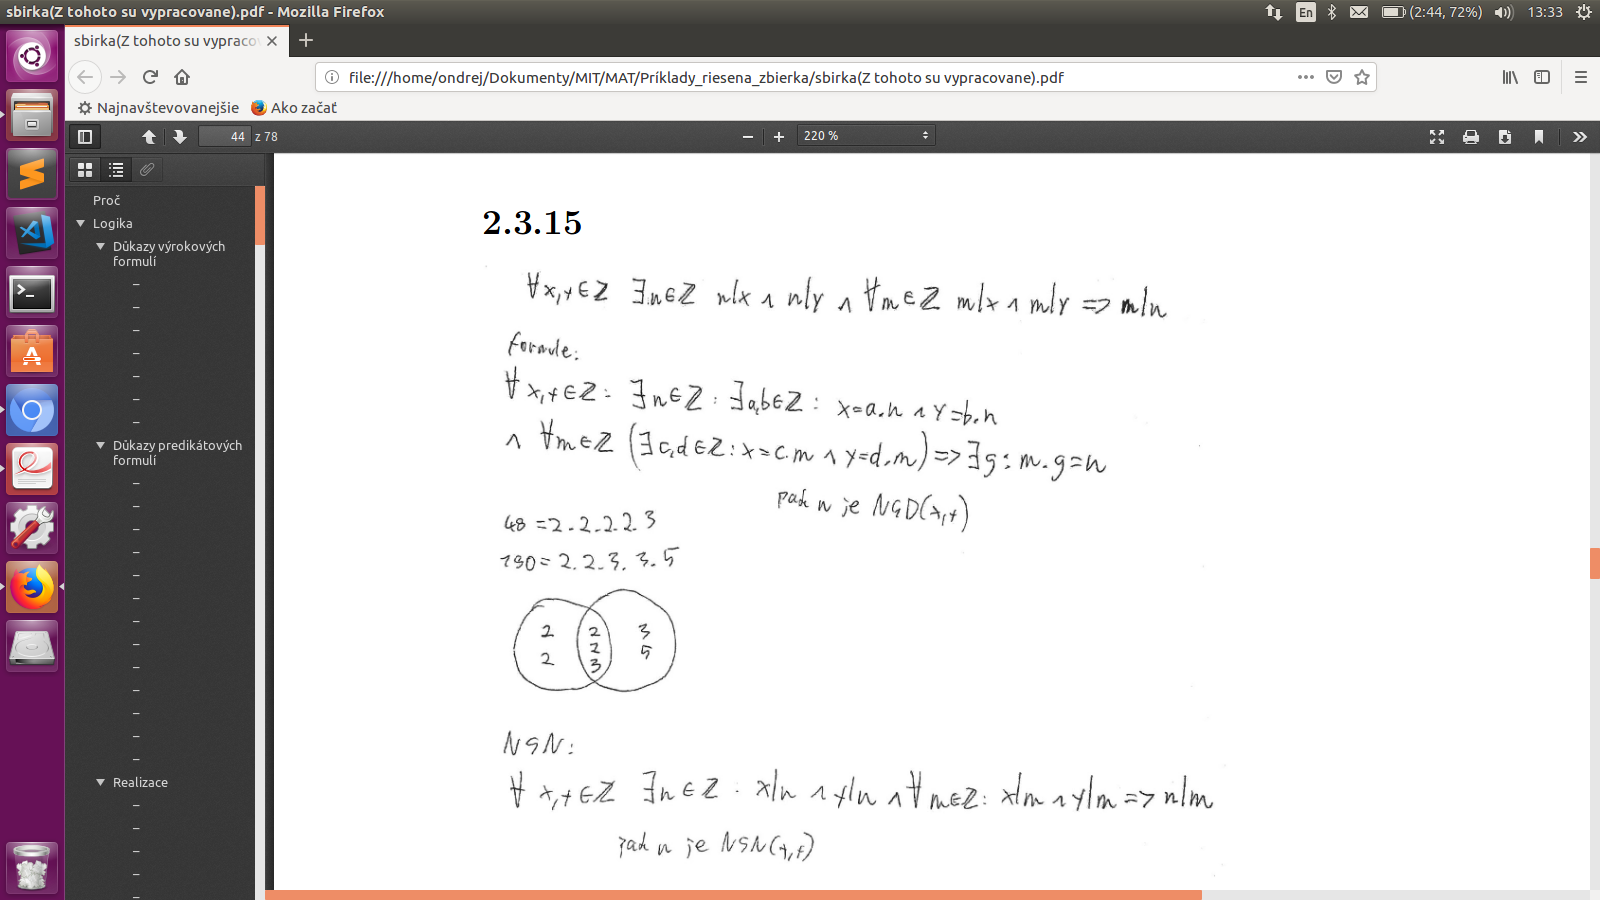 sbirka(Z tohoto su vypracovane).pdf - Mozilla Firefox
En
(2:44, 72%)
13:33
sbirka(Z tohoto su vypracov
file:///home/ondrej/Dokumenty/MIT/MAT/Príklady_riesena_zbierka/sbirka(Z tohoto su vypracovane).pdf
Najnavštevovanejšie
Ako začať
44 z 78
220 %
Proč
Logika
Důkazy výrokových
formulí
Důkazy predikátových
formulí
Realizace
2.3.15
∀x,y∈Z ∃n∈Z n|x ∧ n|y ∧ ∀m∈Z m|x ∧ m|y => m|n
formule:
∀x,y∈Z: ∃n∈Z: ∃a,b∈Z: x=a.n ∧ y=b.n
∧ ∀m∈Z (∃c,d∈Z: x=c.m ∧ y=d.m) => ∃g: m.g=n
pak n je NSD(x,y)
48 = 2.2.2.2.3
180 = 2.2.3.3.5
2 2 3
2 2 5
3
NSN:
∀x,y∈Z ∃n∈Z: x|n ∧ y|n ∧ ∀m∈Z: x|m ∧ y|m => n|m
pak n je NSN(x,y)